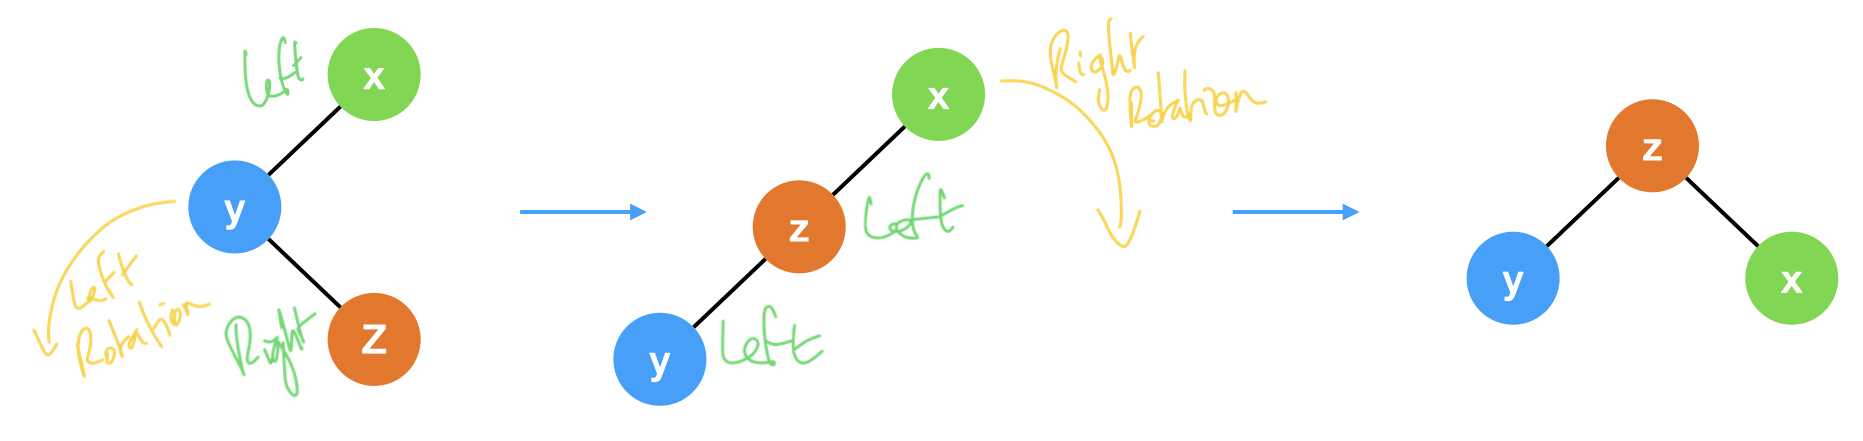 Left
x
y
Left
Rotation
Right
Z
x
Right
Rotation
z
Left
y
Left
z
y
x